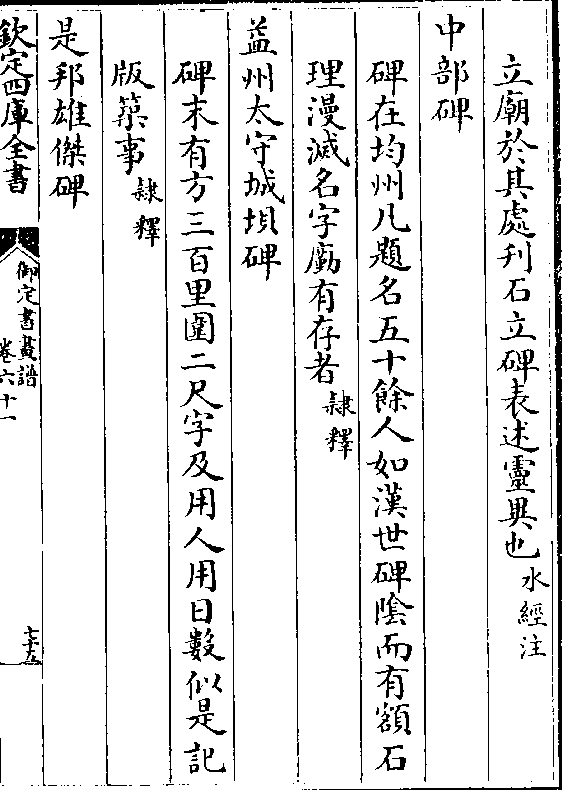 立廟於其處刋石立碑表述靈異也水經注
中部碑
碑在均州凡題名五十餘人如漢世碑隂而有額石
理漫滅名字廑有存者隸釋
益州太守城垻碑
碑末有方三百里圍二尺字及用人用日數似是記
版築事隸釋
是邦雄傑碑
欽定四庫全書
御定書畫譜
卷六十一